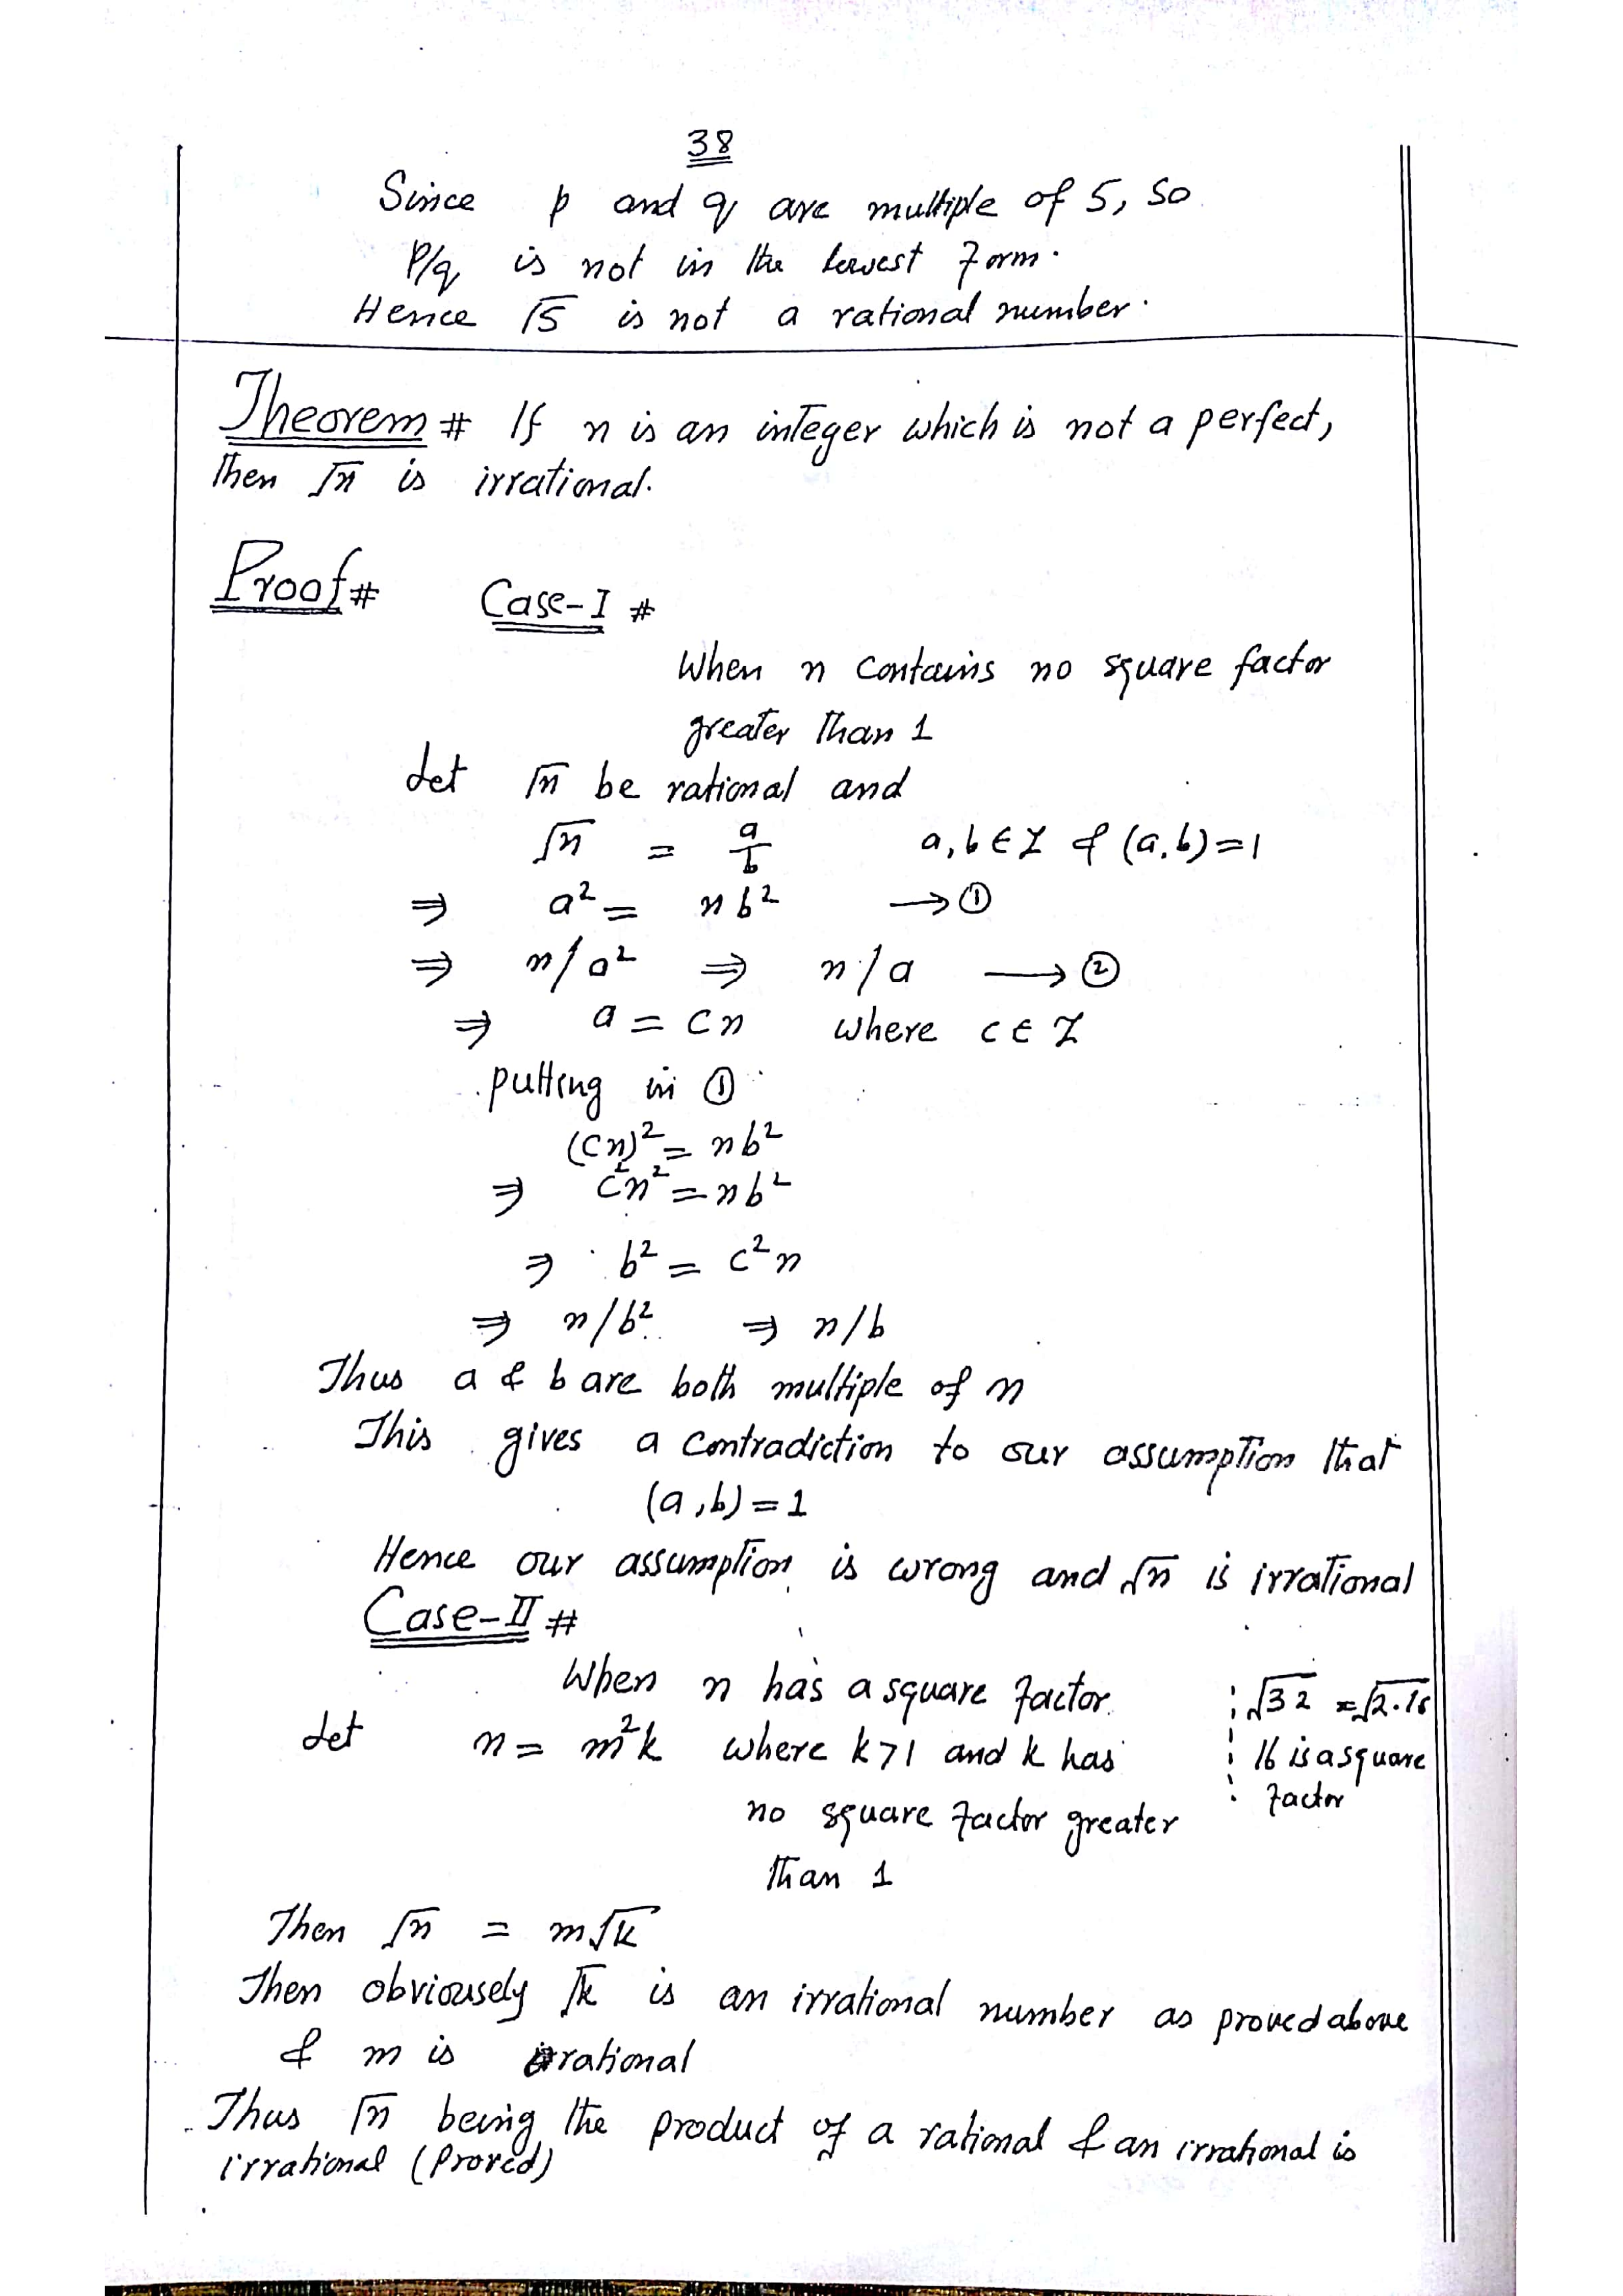 38
Since p and q are multiple of 5, so
P/q is not in the lowest form.
Hence √5 is not a rational number.
Theorem # If n is an integer which is not a perfect,
Then √n is irrational.
Proof # Case-I #
When n contains no square factor
greater than 1
Let √n be rational and
√n = a/b a, b ∈ Z & (a,b)=1
⇒ a² = nb² → ①
⇒ n/a² ⇒ n/a → ②
⇒ a = cn where c ∈ Z
putting in ①
(cn)² = nb²
⇒ c²n² = nb²
⇒ b² = c²n
⇒ n/b² ⇒ n/b
Thus a & b are both multiple of n
This gives a contradiction to our assumption that
(a,b) = 1
Hence our assumption is wrong and √n is irrational
Case-II #
When n has a square factor.
Let n = m²k where k>1 and k has
no square factor greater
than 1
√32 = √2.16
16 is a square
factor
Then √n = m√k
Then obviousely √k is an irrational number as proved above
& m is rational
Thus √n being the product of a rational & an irrational is
irrational (Proved)